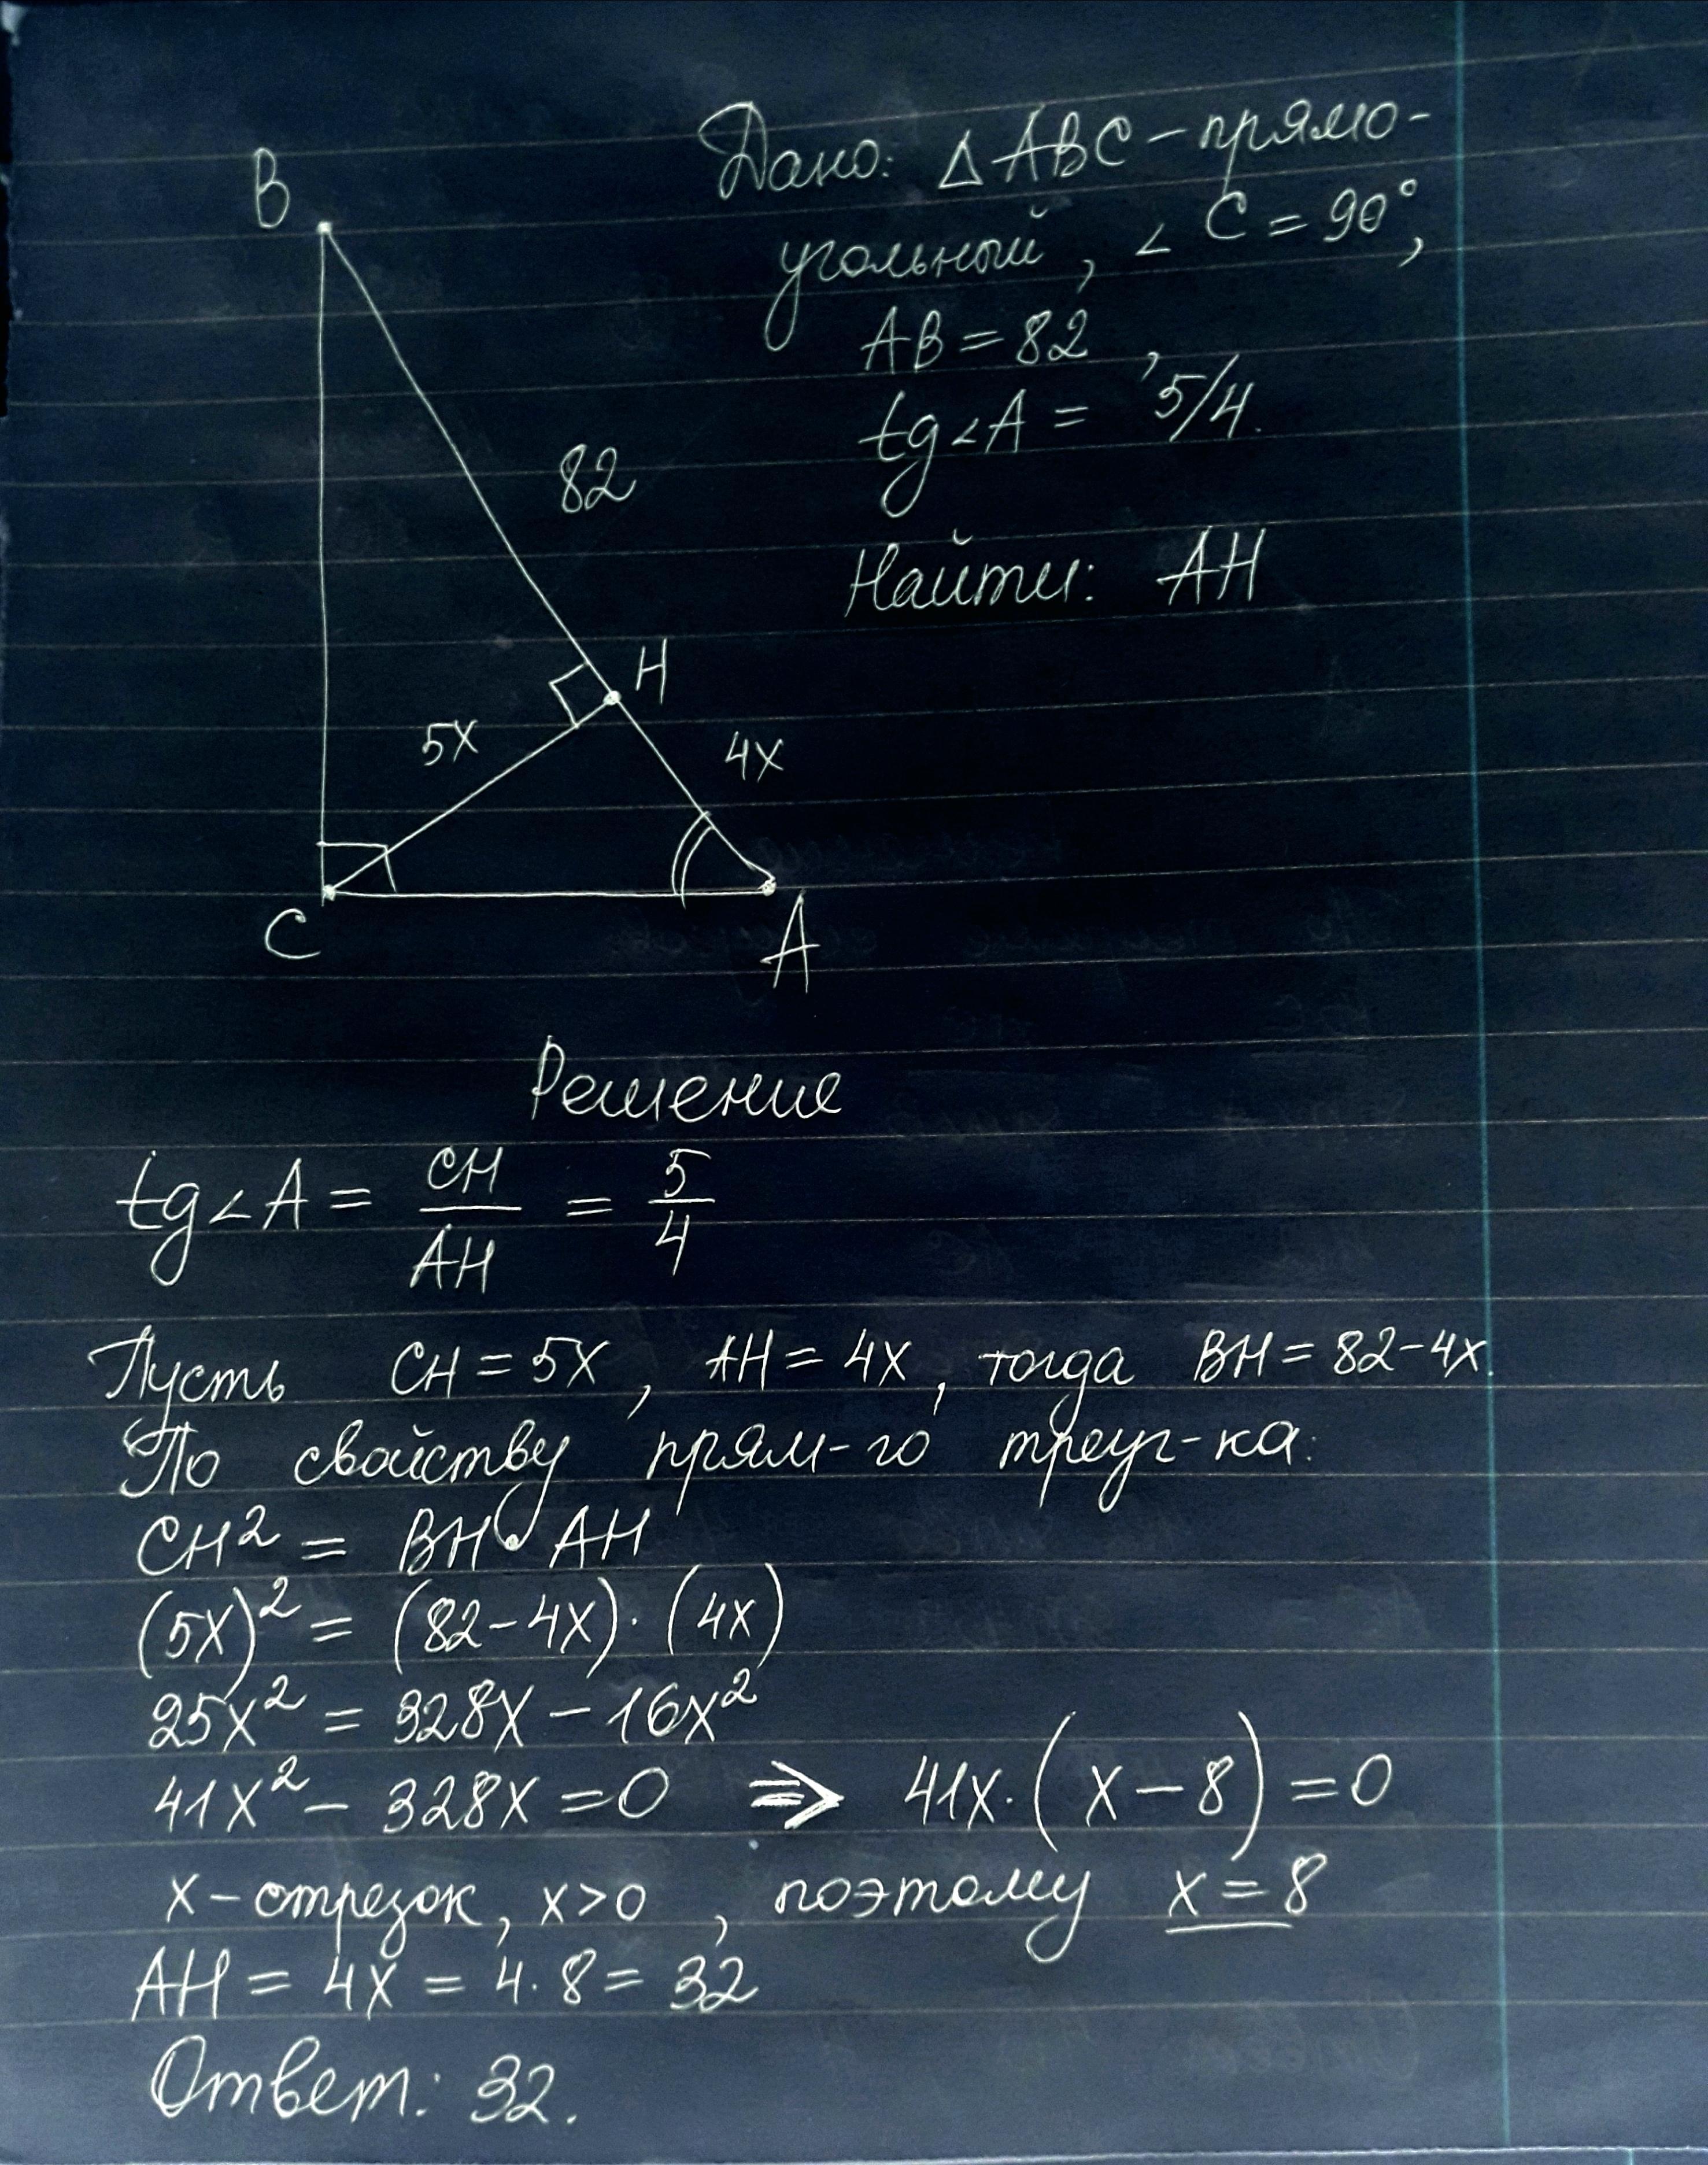 Дано: △ ABC – прямо-
угольный, ∠ C = 90°,
AB = 82,
tg∠A = 5/4.
Найти: AH
B
82
H
5x
4x
C
A
Решение
tg∠A = CH/AH = 5/4
Пусть CH = 5x, AH = 4x, тогда BH = 82-4x.
По свойству прям-го треуг-ка:
CH² = BH · AH
(5x)² = (82-4x) · (4x)
25x² = 328x – 16x²
41x² – 328x = 0 ⇒ 41x · (x – 8) = 0
x – отрезок, x>0, поэтому x = 8
AH = 4x = 4 · 8 = 32
Ответ: 32.